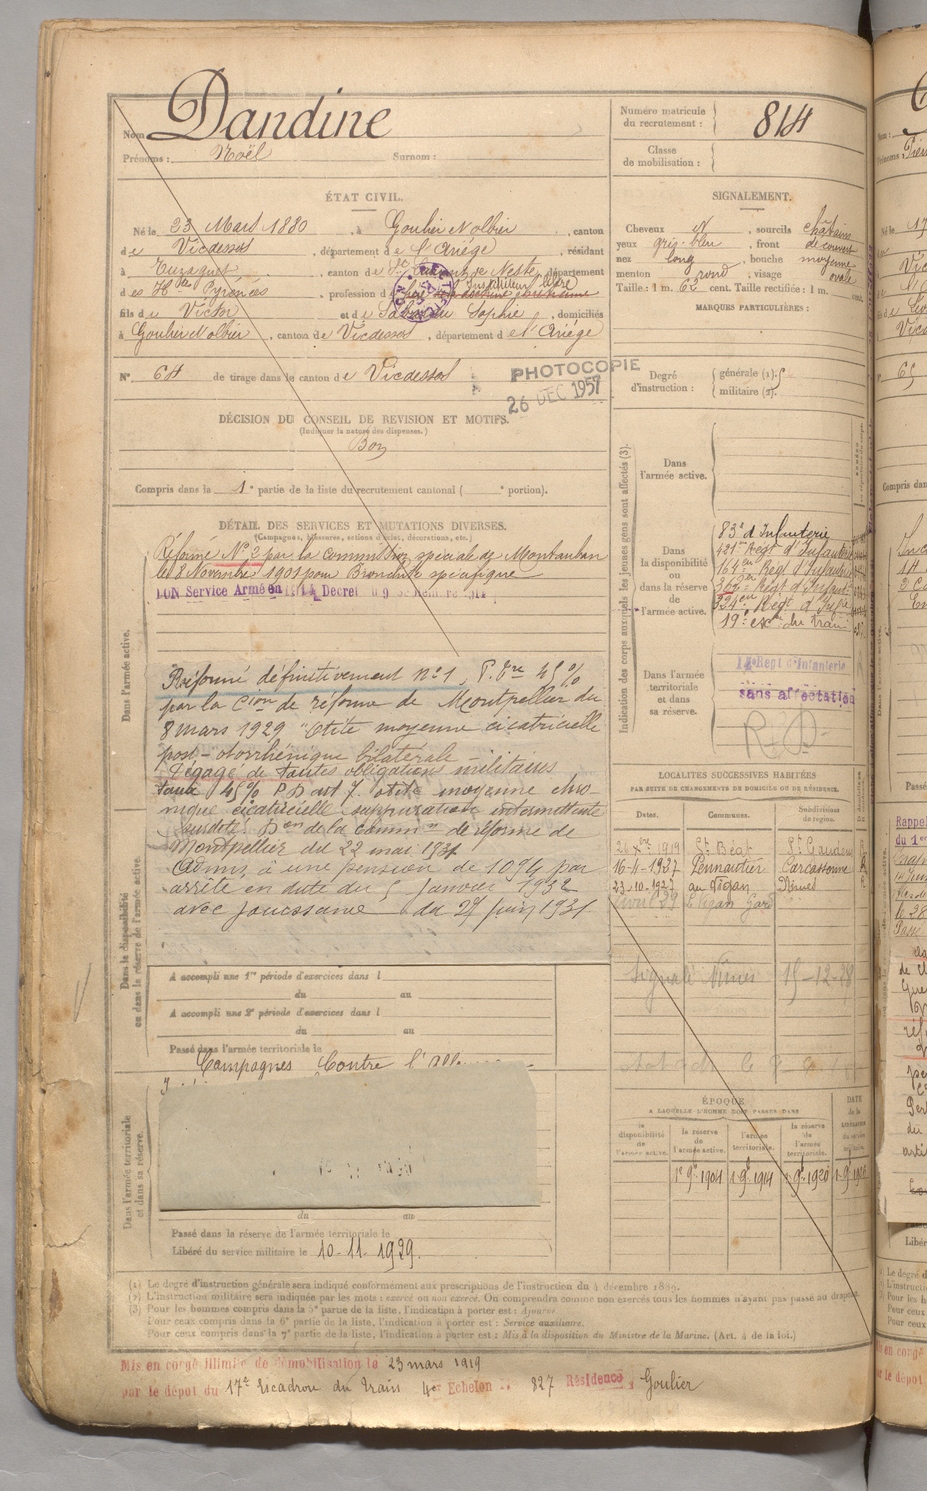 Nom Dandine
Prénoms : Noël Surnom :
Numéro matricule du recrutement : 814
Classe de mobilisation :
ÉTAT CIVIL.
Né le 23 Mars 1880, à Goulier et Olbier, canton
de Vicdessos, département de l'Ariége, résidant
à Tuzaguet, canton de St Laurent de Neste, département
des Htes Pyrénées, profession d Instituteur libre
fils de Victor et de Sophie, domiciliés
à Goulier et Olbier, canton de Vicdessos, département de l'Ariége
N° 64 de tirage dans le canton de Vicdessos
PHOTOCOPIE
26 DEC 1957
DÉCISION DU CONSEIL DE REVISION ET MOTIFS.
(Indiquer la nature des dispenses.)
Bon
Compris dans la 1e partie de la liste du recrutement cantonal ( e portion).
SIGNALEMENT.
Cheveux N, sourcils châtains
yeux gris-bleu, front découvert
nez long, bouche moyenne
menton rond, visage ovale
Taille : 1 m. 62 cent. Taille rectifiée : 1 m. cent.
MARQUES PARTICULIÈRES :
Degré d'instruction : générale (1).
militaire (2).
DÉTAIL DES SERVICES ET MUTATIONS DIVERSES.
(Campagnes, blessures, actions d'éclat, décorations, etc.)
Réformé N° 2 par la commission spéciale de Montauban
le 8 Novembre 1901 pour Bronchite spécifique
BON Service Armé en 1914 Décret du 9 septembre 1914
Dans l'armée active.
Réformé définitivement n° 1, P. 45 %
par la Cion de réforme de Montpellier du
8 mars 1929 "Otite moyenne cicatricielle
post-otorrhéique bilatérale
Dégagé de toutes obligations militaires
taux 45 % P.D. art 7. otite moyenne chro-
nique cicatricielle suppuration intermittente
surdité. Don de la common de réforme de
Montpellier du 22 mai 1931
Admis à une pension de 1094 par
arrêté en date du 5 Janvier 1932
avec jouissance du 27 juin 1931.
Dans la disponibilité ou dans la réserve de l'armée active.
A accompli une 1re période d'exercices dans l
du au
A accompli une 2e période d'exercices dans l
du au
Passé dans l'armée territoriale le
Campagnes Contre l'
Dans l'armée territoriale et dans sa réserve.
du au
Passé dans la réserve de l'armée territoriale le
Libéré du service militaire le 10.11.1929.
Indication des corps auxquels les jeunes gens sont affectés (3).
Dans l'armée active.
Dans la disponibilité ou dans la réserve de l'armée active.
83e d'Infanterie
121e Régt d'Infanterie
164e Régt d'Infant
366e Régt d'Infant
324e Régt d'Infie
19e escon du train
Dans l'armée territoriale et dans sa réserve.
Régt d'Infanterie
sans affectation
LOCALITÉS SUCCESSIVES HABITÉES
PAR SUITE DE CHANGEMENTS DE DOMICILE OU DE RÉSIDENCE.
Dates. Communes. Subdivisions de région.
1919 St Béat St Gaudens
16-4-1927 Pennautier Carcassonne
23-10-1927 au Vigan Nîmes
Avril 29 Le Vigan Gard
Signalé Nîmes 15-12-28
ÉPOQUE
A LAQUELLE L'HOMME DOIT PASSER DANS
la disponibilité de l'armée active.
la réserve de l'armée active.
l'armée territoriale.
la réserve de l'armée territoriale.
DATE de la LIBÉRATION du service militaire.
1er 9bre 1904 1-9bre 1914 1-9bre 1920 1-9bre
(1) Le degré d'instruction générale sera indiqué conformément aux prescriptions de l'instruction du 4 décembre 1889.
(2) L'instruction militaire sera indiquée par les mots : exercé ou non exercé. On comprendra comme non exercés tous les hommes n'ayant pas passé au drapeau.
(3) Pour les hommes compris dans la 5e partie de la liste, l'indication à porter est : Ajourné.
Pour ceux compris dans la 6e partie de la liste, l'indication à porter est : Service auxiliaire.
Pour ceux compris dans la 7e partie de la liste, l'indication à porter est : Mis à la disposition du Ministre de la Marine. (Art. 4 de la loi.)
Mis en congé illimité de démobilisation le 23 mars 1919
par le dépôt du 17e Escadron du Train 4e Echelon 827 Résidence, Goulier